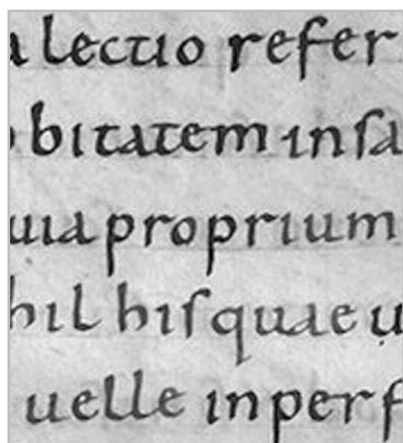 a lectio refer
bitatem insa
uia proprium
hil hisquae u
uelle inperf